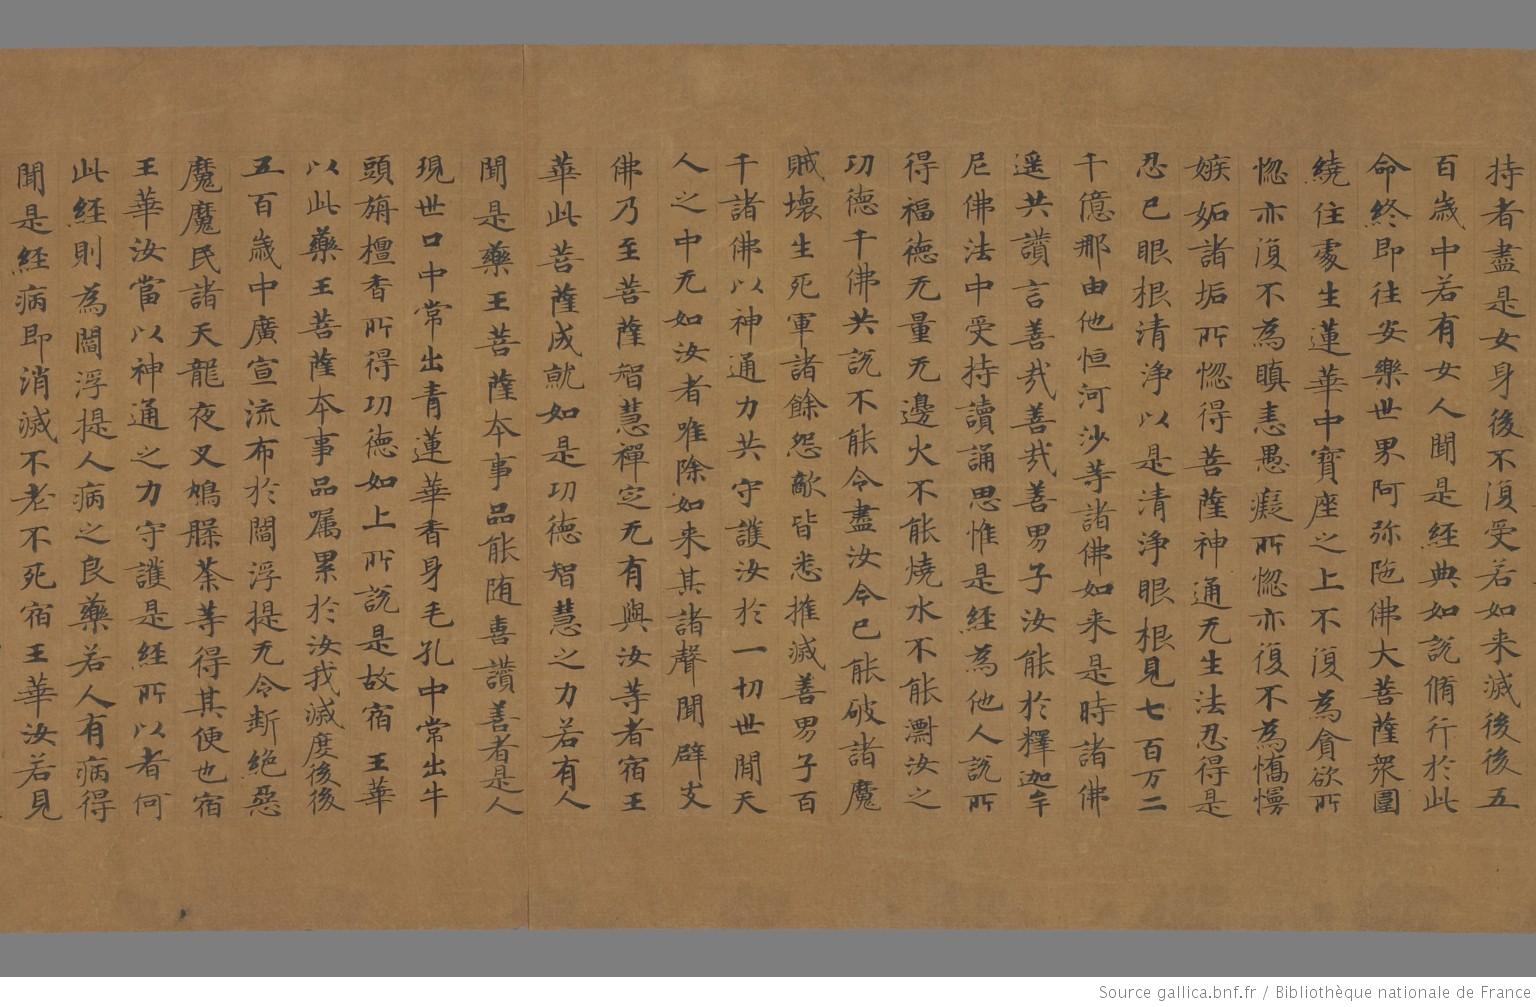 持者盡是女身後不復受若如来滅後後五
百歲中若有女人聞是經典如說脩行於此
命終即往安樂世界阿弥陁佛大菩薩眾圍
繞住處生蓮華中寶座之上不復為貪欲所
惱亦復不為瞋恚愚癡所惱亦復不為憍慢
嫉妬諸垢所惱得菩薩神通无生法忍得是
忍已眼根清淨以是清淨眼根見七百万二
千億那由他恒河沙等諸佛如来是時諸佛
遥共讚言善哉善哉善男子汝能於釋迦牟
尼佛法中受持讀誦思惟是經為他人說所
得福德无量无邊火不能燒水不能漂汝之
功德千佛共說不能令盡汝今已能破諸魔
賊壞生死軍諸餘怨敵皆悉摧滅善男子百
千諸佛以神通力共守護汝於一切世間天
人之中无如汝者唯除如来其諸聲聞辟支
佛乃至菩薩智慧禪定无有與汝等者宿王
華此菩薩成就如是功德智慧之力若有人
聞是藥王菩薩本事品能随喜讚善者是人
現世口中常出青蓮華香身毛孔中常出牛
頭旃檀香所得功德如上所說是故宿王華
以此藥王菩薩本事品嘱累於汝我滅度後後
五百歲中廣宣流布於閻浮提无令断絶惡
魔魔民諸天龍夜叉鳩縣荼等得其便也宿
王華汝當以神通之力守護是經所以者何
此經則為閻浮提人病之良藥若人有病得
聞是經病即消滅不老不死宿王華汝若見
Source gallica.bnf.fr / Bibliothèque nationale de France